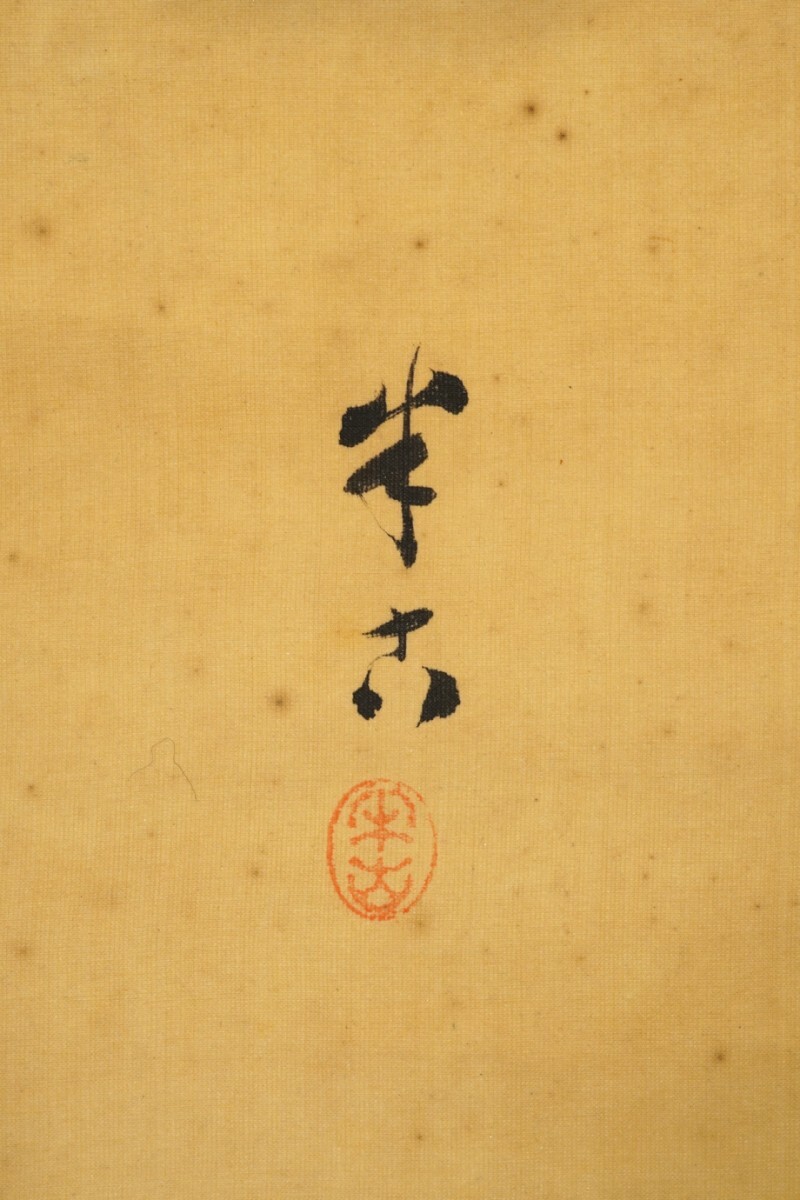 半古
半古